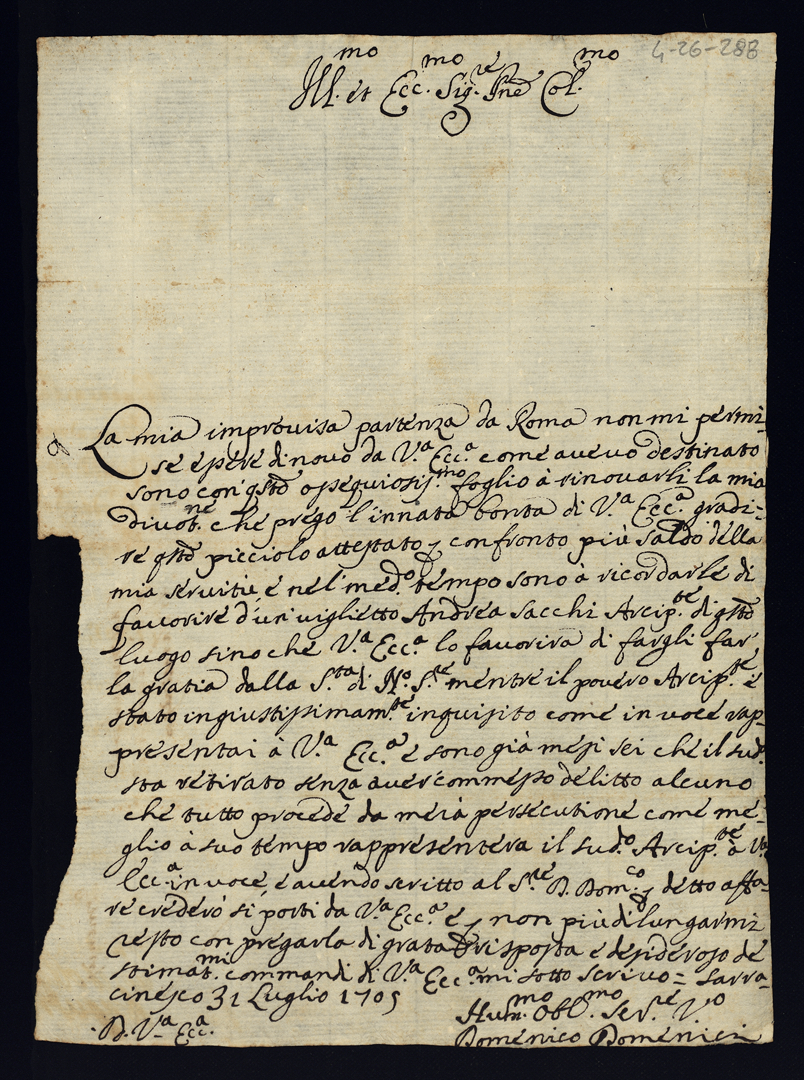 4-26-288
Ill.mo et Ecc.mo Sig.re Pne Col.mo
La mia improvisa partenza da Roma non mi permi-
se epere di novo da V.a Ecc.a come avevo destinato
sono con qsto ossequiosis.mo foglio à rinovarli la mia
divot.ne che prego l'innata bontà di V.a Ecc.a gradi=
re qsto picciolo attestato p confronto più saldo della
mia servitù e nel med.o tempo sono à ricordarle di
favorire d'un viglietto Andrea Sacchi Arcip.te di qsto
luogo sino che V.a Ecc.a lo favorirà di fargli far
la gratia dalla S.ta di No. S.re mentre il povero Arcip.te è
stato ingiustissimam.te inquisito come in voce rap-
presentai à V.a Ecc.a e sono già mesi sei che il sud.o
sta retirato senza aver commesso delitto alcuno
che tutto procede da mera persecutione come me-
glio à suo tempo rappresenterà il sud.o Arcip.te à V.a
Ecc.a in voce, e avendo scritto al S.re D. Dom.co p detto affa-
re crederò si porti da V.a Ecc.a e p non più dilungarmi
resto con pregarla di grata risposta e desideroso de
stimat.mi commandi di V.a Ecc.a mi sotto scrivo = Sarra-
cinesco 31 Luglio 1705
D. V.a Ecc.a
Hum.mo Obl.mo Ser.re V.o
Domenico Domenici